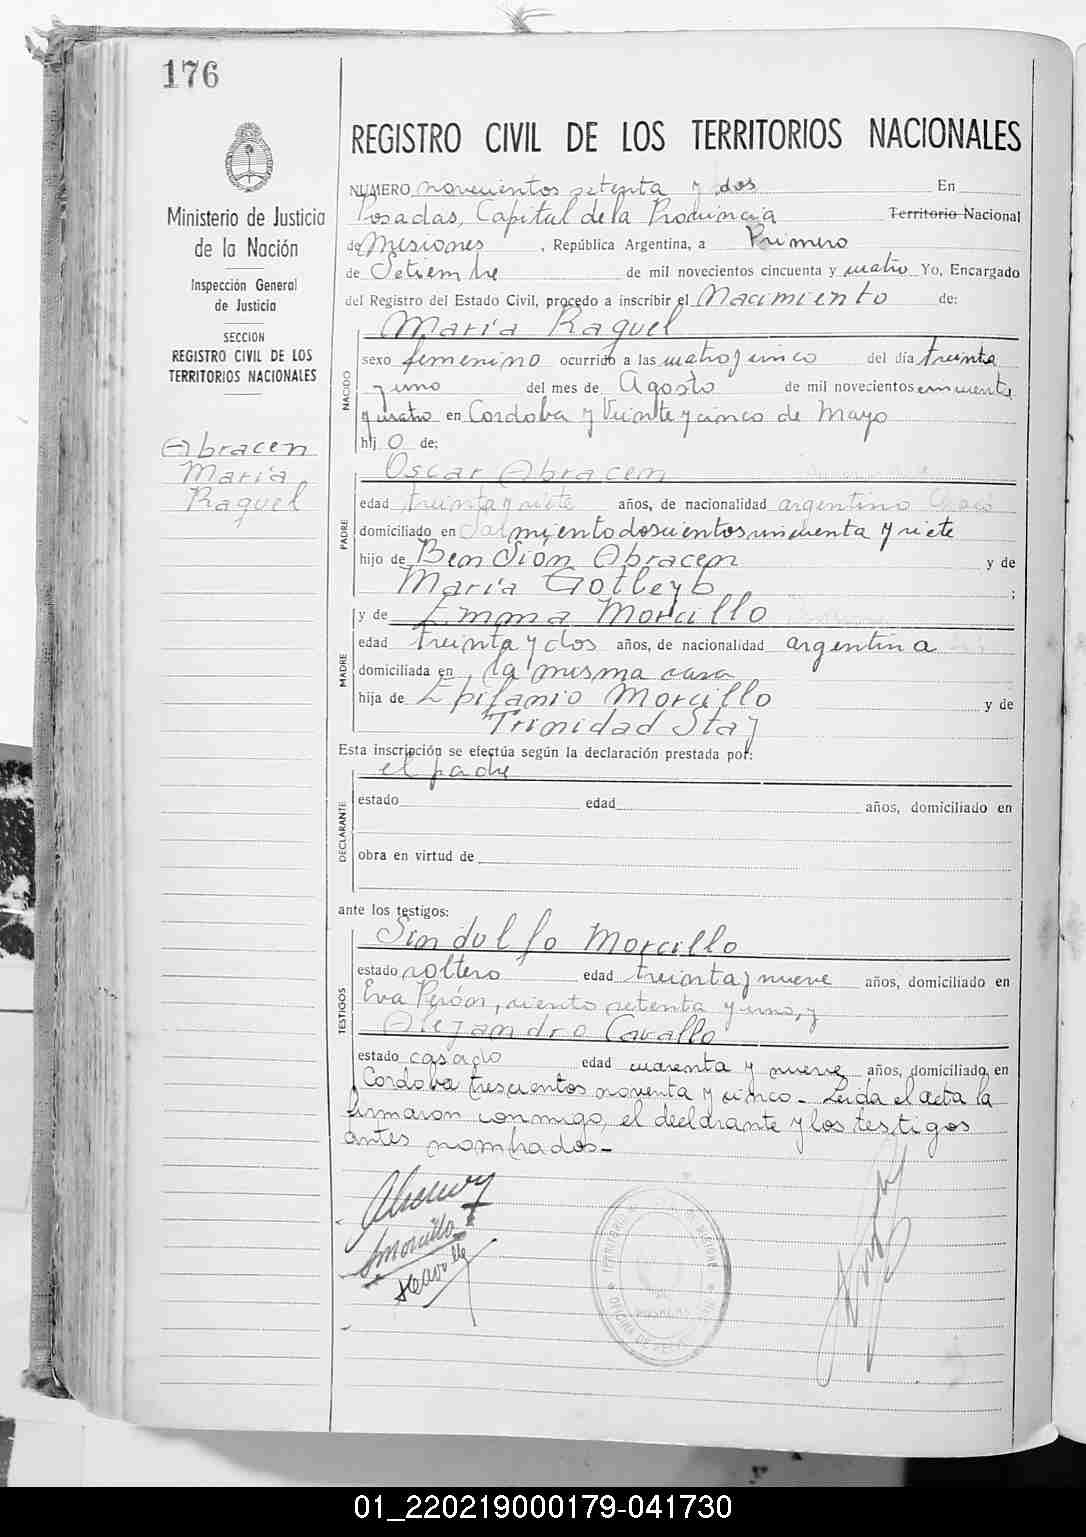 176
REGISTRO CIVIL DE LOS TERRITORIOS NACIONALES
Ministerio de Justicia
de la Nación
Inspección General
de Justicia
SECCION
REGISTRO CIVIL DE LOS
TERRITORIOS NACIONALES
Abracen
María
Raquel
NUMERO novecientos setenta y dos En
Posadas, Capital de la Provincia Territorio Nacional
de Misiones, República Argentina, a Primero
de Setiembre de mil novecientos cincuenta y cuatro Yo, Encargado
del Registro del Estado Civil, procedo a inscribir el Nacimiento de:
NACIDO
María Raquel
sexo femenino ocurrido a las cuatro y cinco del día treinta
y uno del mes de Agosto de mil novecientos cincuenta
y cuatro en Cordoba y Veinte y cinco de Mayo
hij o de:
PADRE
Oscar Abracen
edad treinta y siete años, de nacionalidad argentino
domiciliado en Sarmiento doscientos cincuenta y siete
hijo de Ben Sion Abracen y de
María Gotleyb ;
MADRE
y de Emma Morcillo
edad treinta y dos años, de nacionalidad argentina
domiciliada en la misma casa
hija de Epifanio Morcillo y de
Trinidad Stay
Esta inscripción se efectúa según la declaración prestada por:
DECLARANTE
el padre
estado edad años, domiciliado en
obra en virtud de
ante los testigos:
TESTIGOS
Sindulfo Morcillo
estado soltero edad treinta y nueve años, domiciliado en
Eva Perón, ciento setenta y uno, y
Alejandro Cavallo
estado casado edad cuarenta y nueve años, domiciliado en
Cordoba trescientos noventa y cinco. Leida el acta la
firmaron conmigo, el declarante y los testigos
antes nombrados.-
Morcillo
01_220219000179-041730